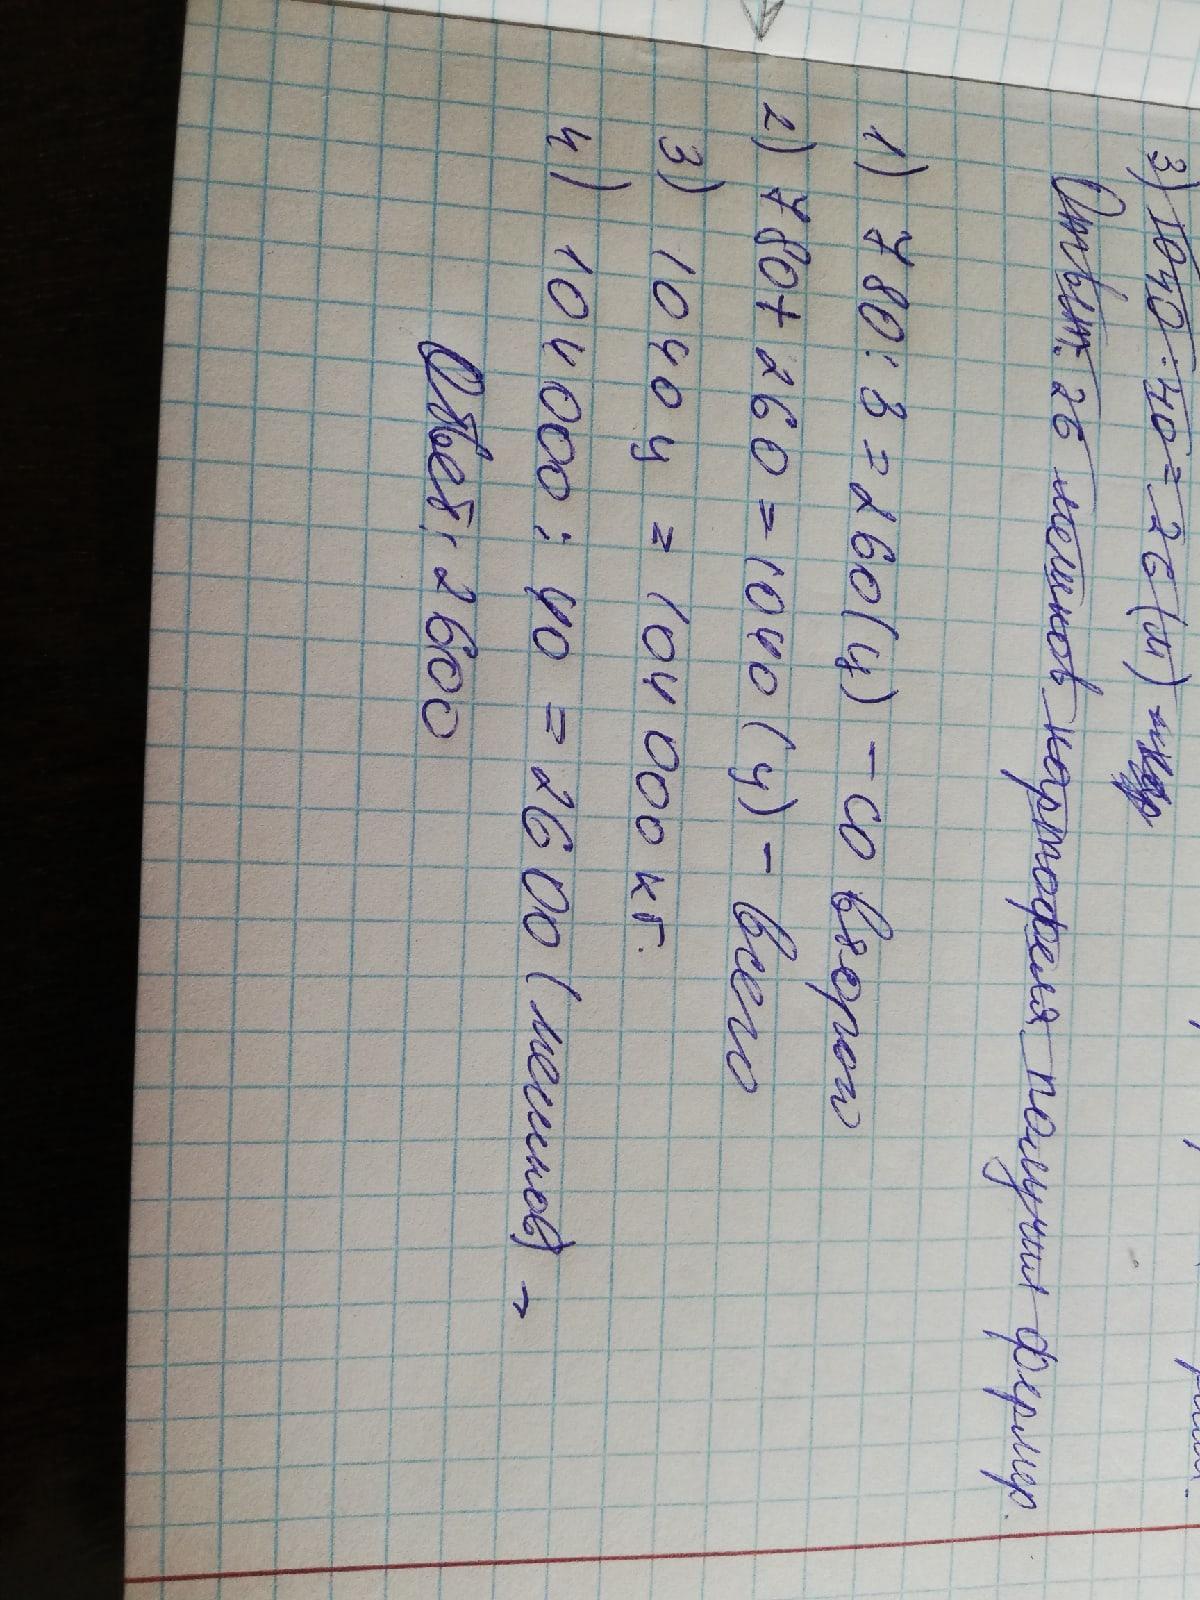 3) 1040 : 40 = 26 (м)
Ответ: 26 мешков картофеля получил фермер.
1) 780 : 3 = 260 (ц) - со второй
2) 780 + 260 = 1040 (ц) - всего
3) 1040 ц = 104 000 кг.
4) 104 000 : 40 = 2600 (мешков) -
Ответ: 2600